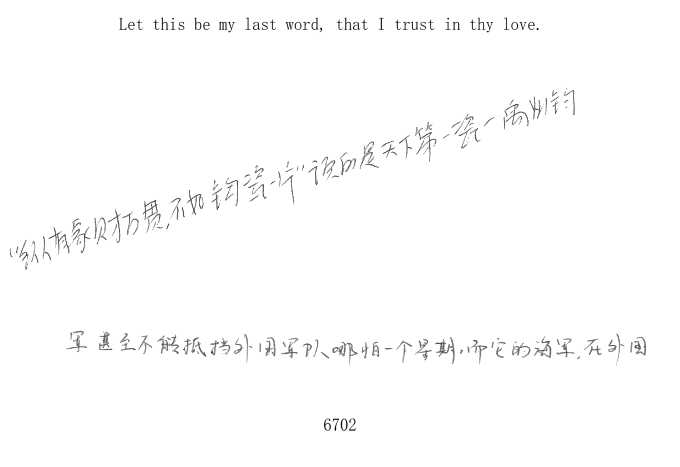 Let this be my last word, that I trust in thy love.
“纵有家财万贯,不如钧瓷一片”说的是天下第一瓷一禹州钧
军甚至不能抵挡外国军队、哪怕一个星期,而它的海军,在外国
6702